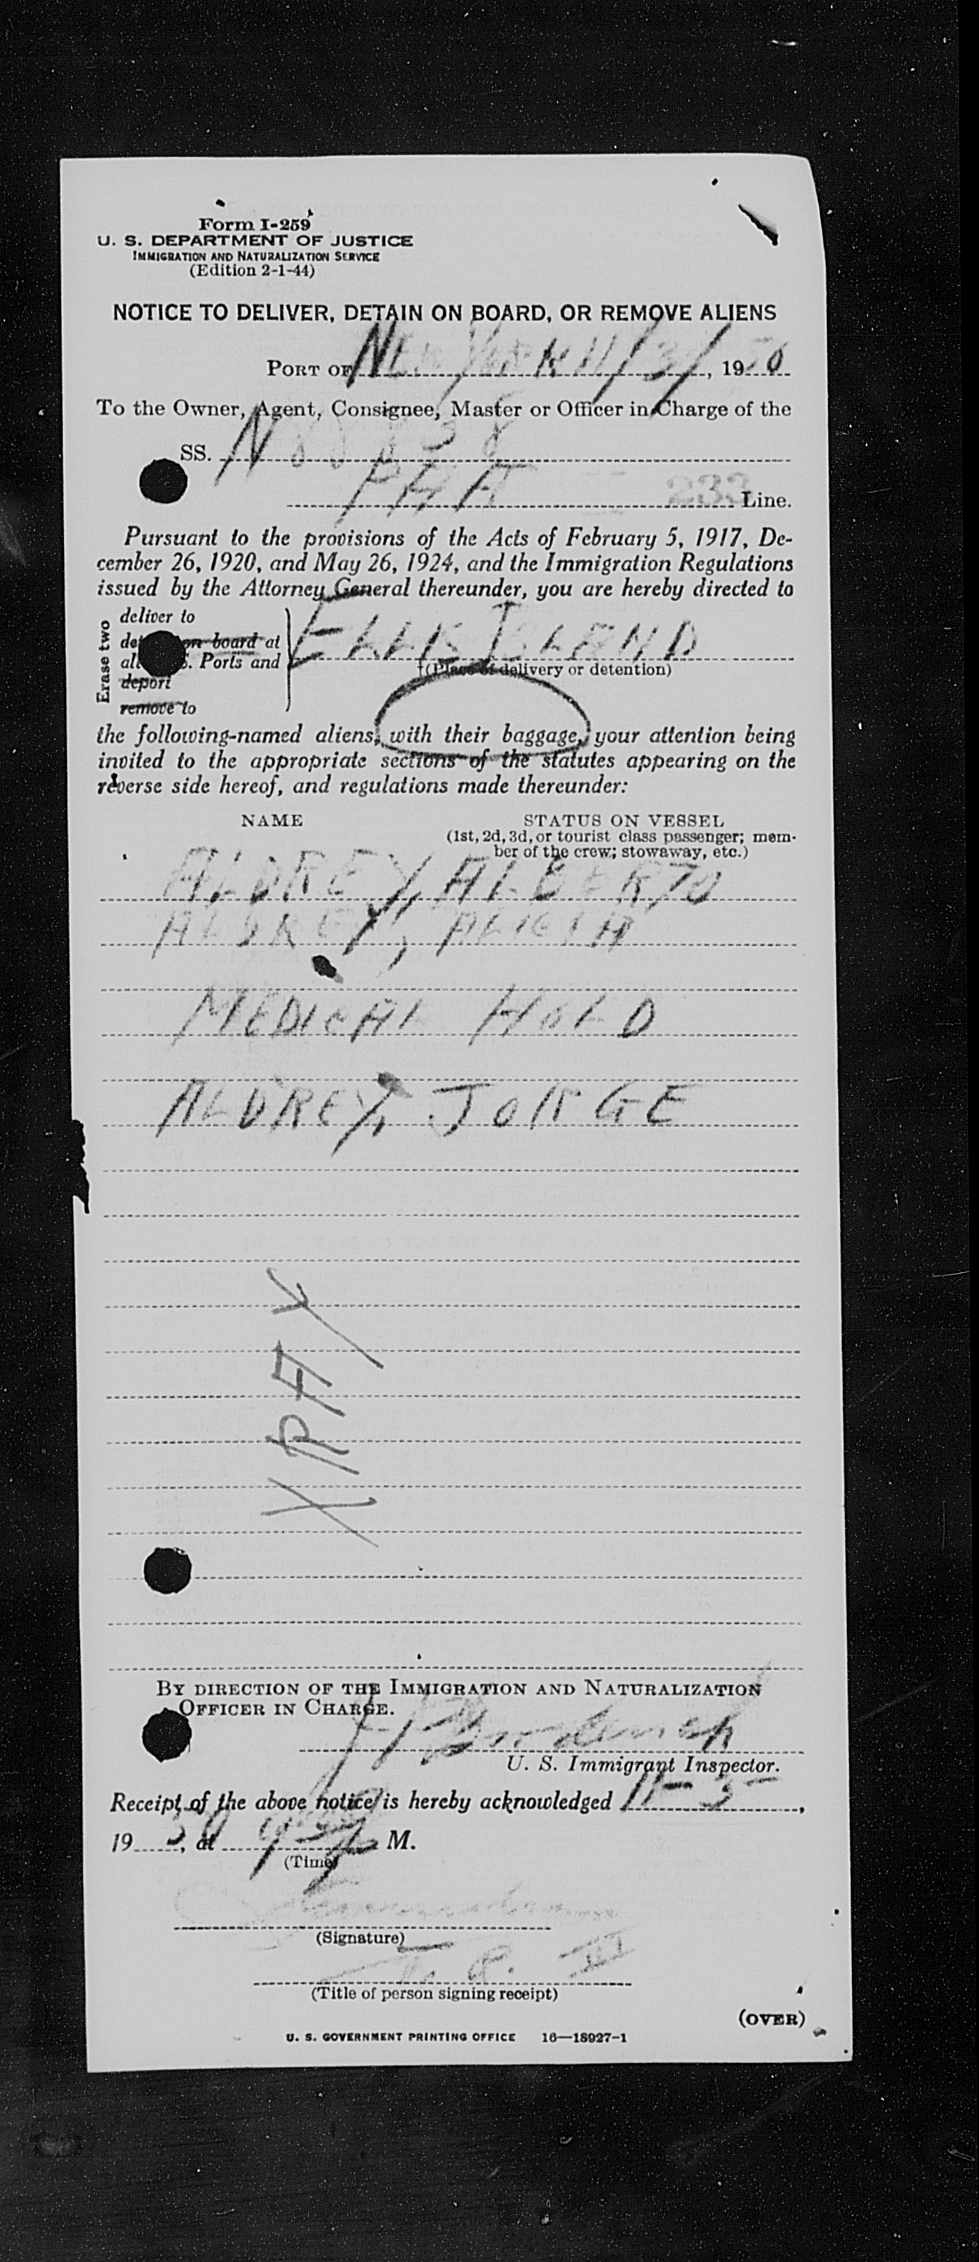 Form I-259
U. S. DEPARTMENT OF JUSTICE
IMMIGRATION AND NATURALIZATION SERVICE
(Edition 2-1-44)
NOTICE TO DELIVER, DETAIN ON BOARD, OR REMOVE ALIENS
PORT OF NEW YORK 11/3/, 1950
To the Owner, Agent, Consignee, Master or Officer in Charge of the
SS. N88838
PAA 233 Line.
Pursuant to the provisions of the Acts of February 5, 1917, De-
cember 26, 1920, and May 26, 1924, and the Immigration Regulations
issued by the Attorney General thereunder, you are hereby directed to
Erase two
deliver to
on board at
Ports and
deport
remove to
ELLIS ISLAND
(Place of delivery or detention)
the following-named aliens, with their baggage, your attention being
invited to the appropriate sections of the statutes appearing on the
reverse side hereof, and regulations made thereunder:
NAME STATUS ON VESSEL
(1st, 2d, 3d, or tourist class passenger; mem-
ber of the crew; stowaway, etc.)
ALDREY, ALBERTO
ALDREY, ALICIA
MEDICAL HOLD
ALDREY, JORGE
X PAX
BY DIRECTION OF THE IMMIGRATION AND NATURALIZATION
OFFICER IN CHARGE.
U. S. Immigrant Inspector.
Receipt of the above notice is hereby acknowledged 11-3-,
19 50, at M.
(Time)
(Signature)
(Title of person signing receipt)
(OVER)
U. S. GOVERNMENT PRINTING OFFICE 16—18927-1